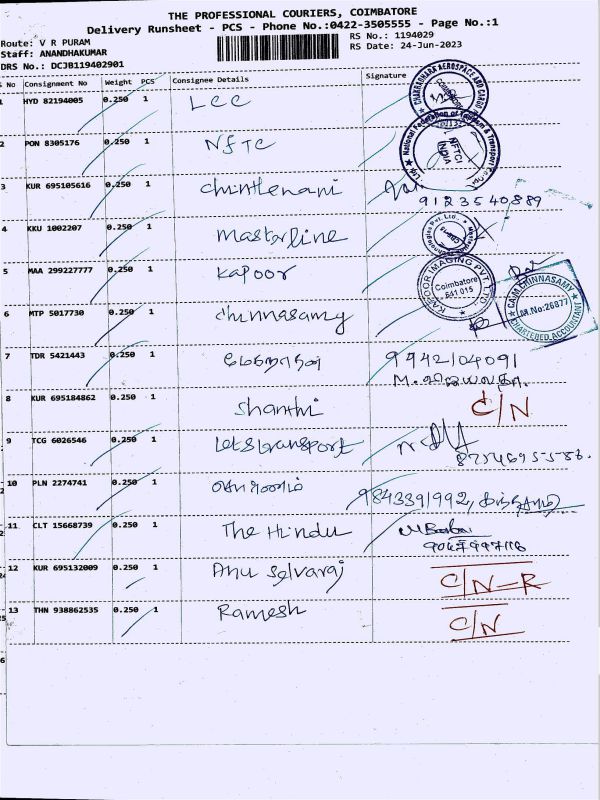 THE PROFESSIONAL COURIERS, COIMBATORE
Delivery Runsheet - PCS - Phone No.:0422-3505555 - Page No.:1
Route: V R PURAM
RS No.: 1194029
Staff: ANANDHAKUMAR
RS Date: 24-Jun-2023
DRS No.: DCJB119402901
S No Consignment No Weight PCS Consignee Details Signature
1 HYD 82194005 0.250 1 Lee
CHAKRADHARA AEROSPACE AND CARGO
2 PON 8305176 0.250 1 NFTC
National Federation of Tourism & Transport
NFTCI
INDIA
3 KUR 695105616 0.250 1 Chinthenani
9123540889
4 KKU 1002207 0.250 1 Masterline
5 MAA 299227777 0.250 1 Kapoor
KAPOOR IMAGING PVT. LTD
Coimbatore
641 015
6 MTP 5017730 0.250 1 Chinnasamy
CHINNASAMY
M.No:26877
CHARTERED ACCOUNTANT
7 TDR 5421443 0.250 1 9942104091
8 KUR 695184862 0.250 1 Shanthi C/N
9 TCG 6026546 0.250 1 Letstransport
8754695586.
10 PLN 2274741 0.250 1 9843391992,
11 CLT 15668739 0.250 1 The Hindu
12 KUR 695132009 0.250 1 Anu Selvaraj C/N-R
13 THN 938862535 0.250 1 Ramesh C/N